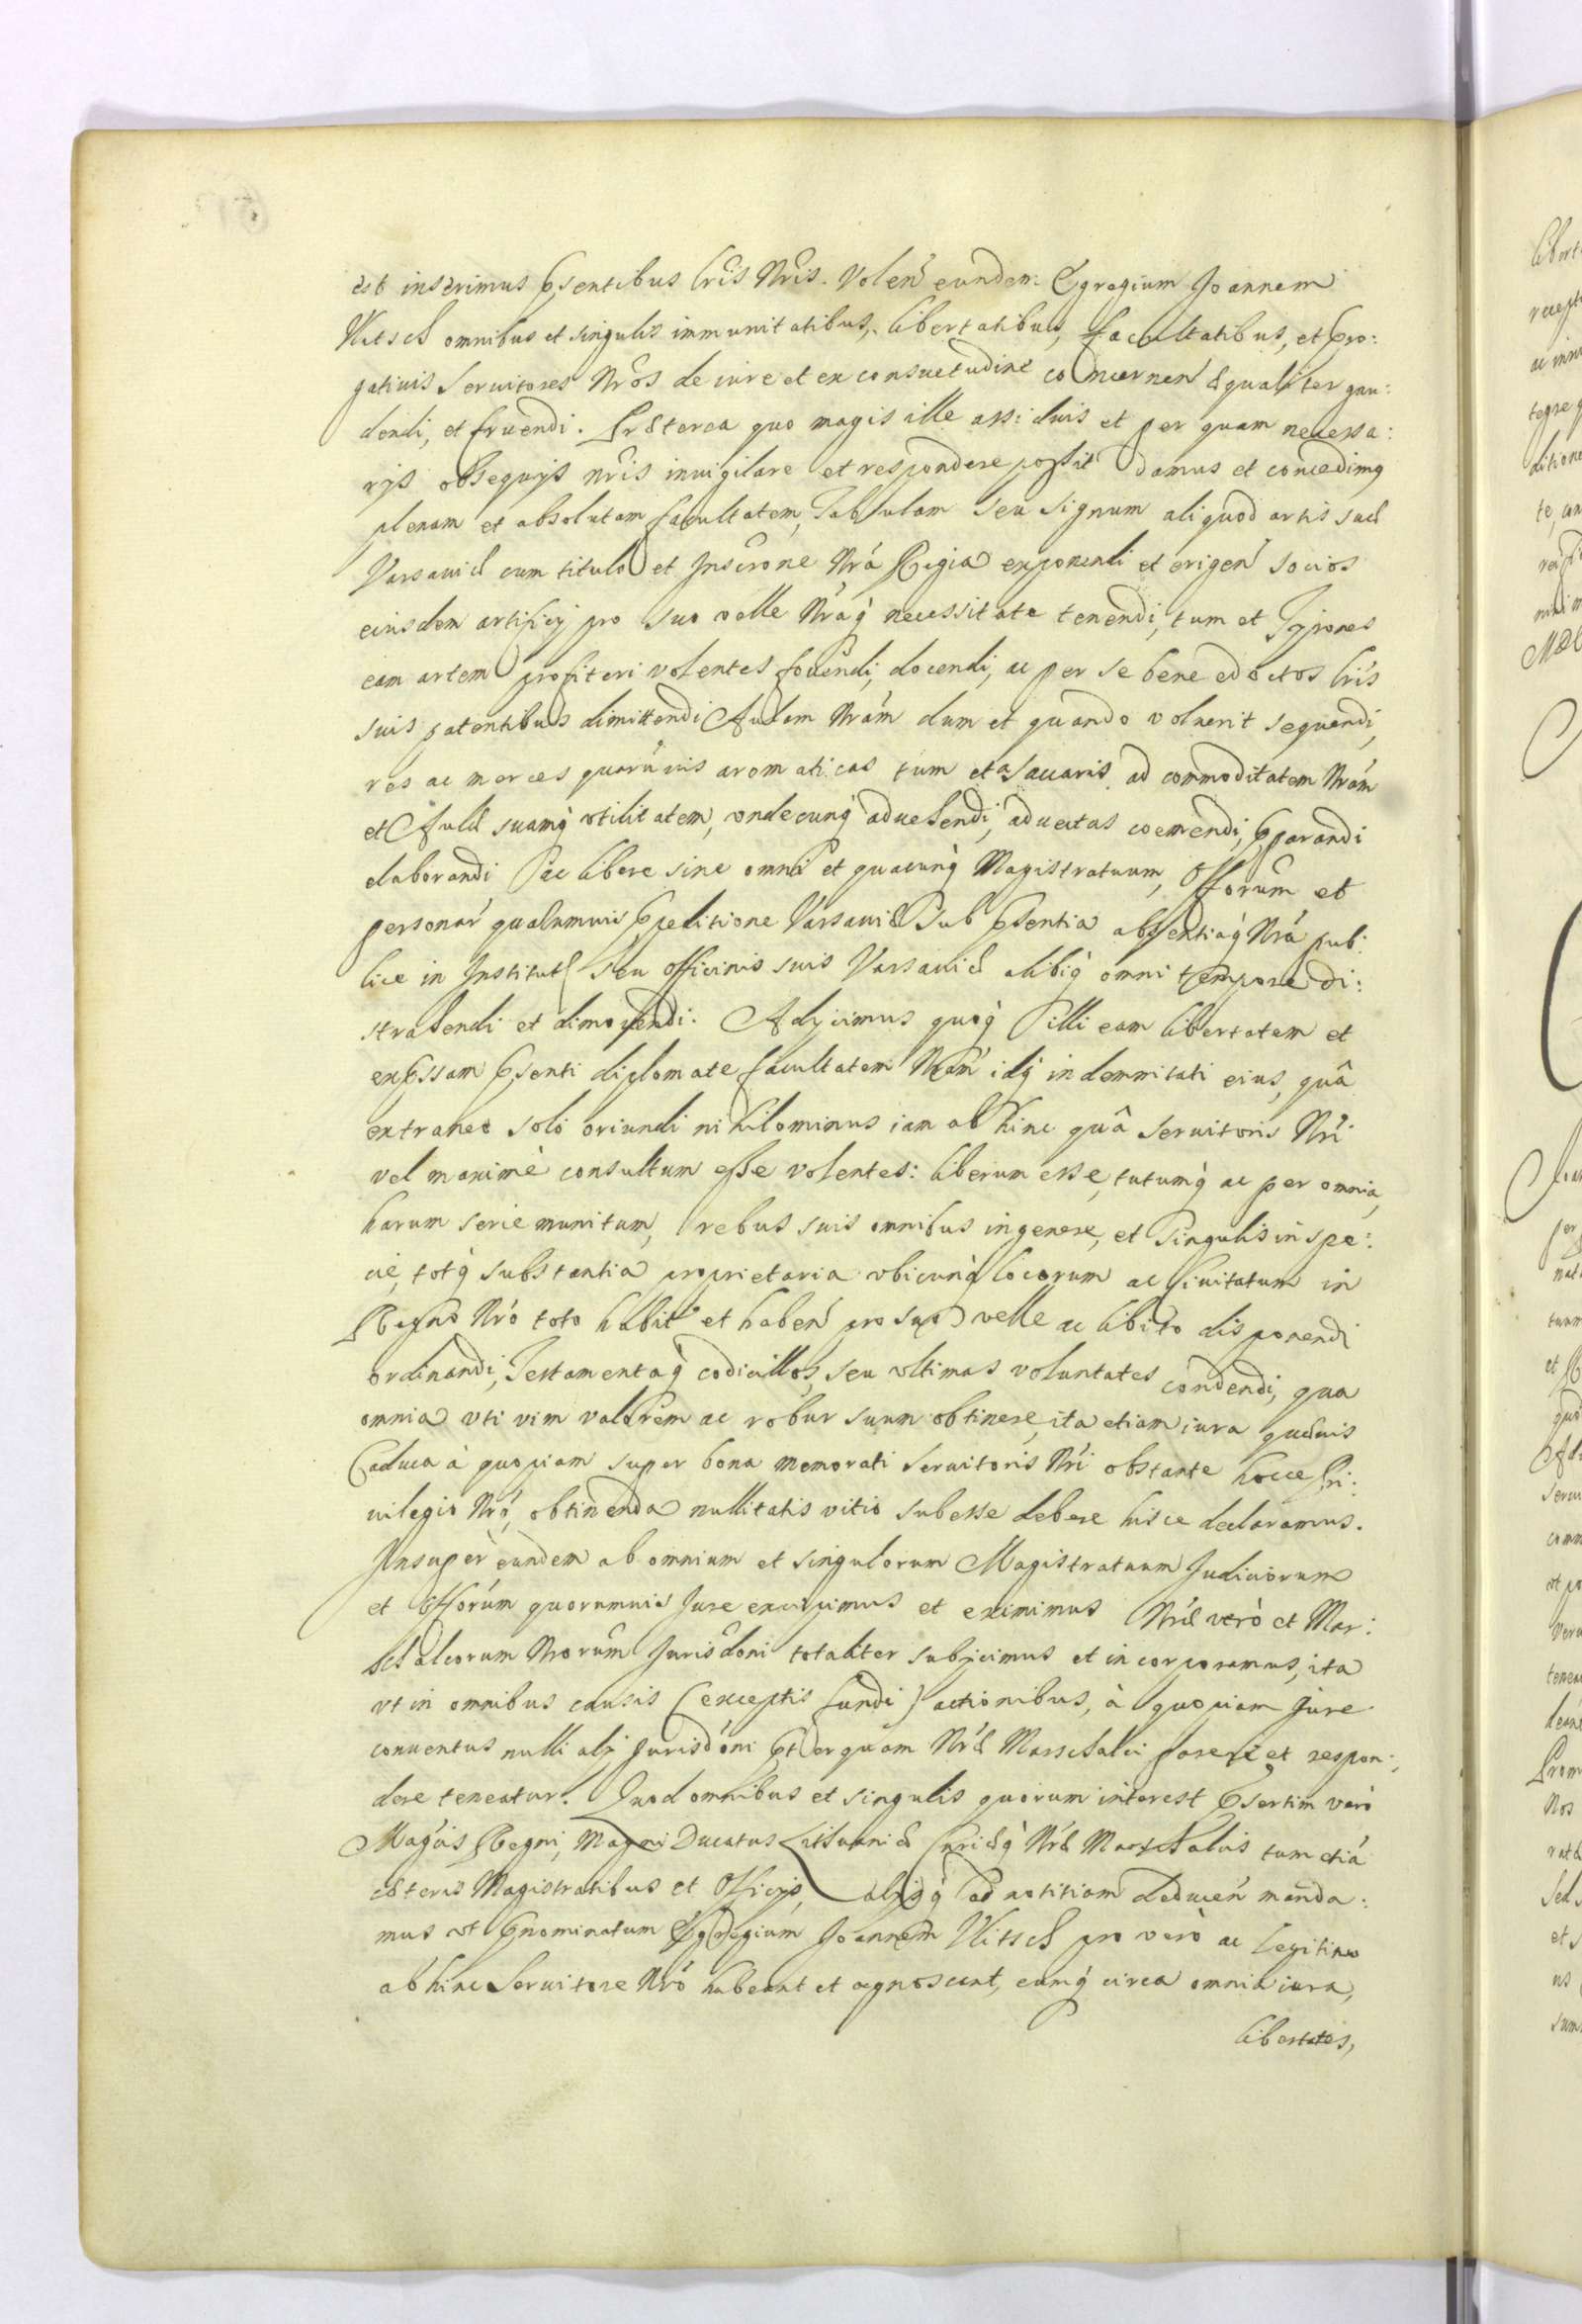 est inserimus Psentibus lris Nris. Volen eundem Egregium Joannem
Witsch omnibus et singulis immunitatibus, libertatibus, facultatibus, et Pro:
gatiuis Seruitores Nros de iure et ex consuetudine concernen æqualiter gau:
dendi, et fruendi. Præterea quo magis ille assiduis et per quam necessa:
rijs obsequijs nris inuigilare et respondere possit damus et concedimq
plenam et absolutam facultatem, Tabulam seu signum aliquod artis suæ
Varsauiæ cum titulo et Inscrone Nra Regia exponendi et erigen socios
eiusdem artificij pro suo velle Nraq necessitate tenendi, tum et Tyrones
eam artem profiteri volentes fouendi, docendi, ac per se bene edoctos lris
suis patentibus dimittendi Aulam Nram dum et quando voluerit sequendi,
res ac merces quasuis aromaticas tum et Saccaris ad commoditatem Nram
et Aulæ suamq vtilitatem, vndecunq aduehendi, aduectas coemendi, Pparandi
elaborandi ac libere sine omni et quacunq Magistratuum, Offorum et
personar qualumuis Ppeditione Varsauiæ sub Psentia absentiaq Nra pub:
lice in Institut seu officinis suis Varsauiæ alibiq omni tempore di:
strahendi et dimouendi. Adijcimus quoq illi eam libertatem et
exPssam Psenti diplomate facultatem Nram idq indemnitati eius, quâ
extraneo solo oriundi nihilominus iam ab hinc quâ Seruitoris Nri
vel maximè consultum esse volentes: liberum esse, tutumq ac per omnia,
harum serie munitum, rebus suis omnibus in genere, et singulis in spe:
cie, totq substantia proprietaria vbicunq locorum ac Ciuitatum in
Regno Nro toto habit et haben pro suo velle ac libito disponendi
ordinandi, Testamentaq codicillos, seu vltimas voluntates condendi, qua
omnia vti vim valorem ac robur suum obtinere, ita etiam iura quæuis
Caduca à quopiam super bona memorati Seruitoris Nri obstante hocce Pri:
uilegio Nro, obtinenda nullitatis vitio subesse debere hisce declaramus.
Insuper eundem ab omnium et singulorum Magistratuum Iudiciorum
et Offorum quorumuis Jure excipimus et eximimus Nræ verò et Mar:
schalcorum Nrorum Jurisdoni totaliter subijcimus et incorporamus, ita
vt in omnibus causis (exceptis fundi) actionibus, à quopiam Jure
conuentus nulli alij Jurisdoni Pterquam Nræ Marschalci parere et respon:
dere teneatur. Quod omnibus et singulis quorum interest Psertim vero
Magcis Regni, Magni Ducatus Lithuaniæ Curiæq Nræ Marschalcis tum etiã
cæteris Magistratibus et Officijs, alijsq ad notitiam deducen manda:
mus vt Pnominatum Egregium Joannem Witsch pro vero ac legitimo
ab hinc Seruitore Nro habeant et agnoscant, eumq circa omnia iura,
libertates,